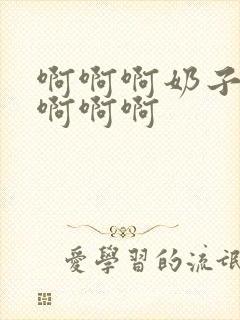 啊啊啊奶子
啊啊啊
愛學習的流氓